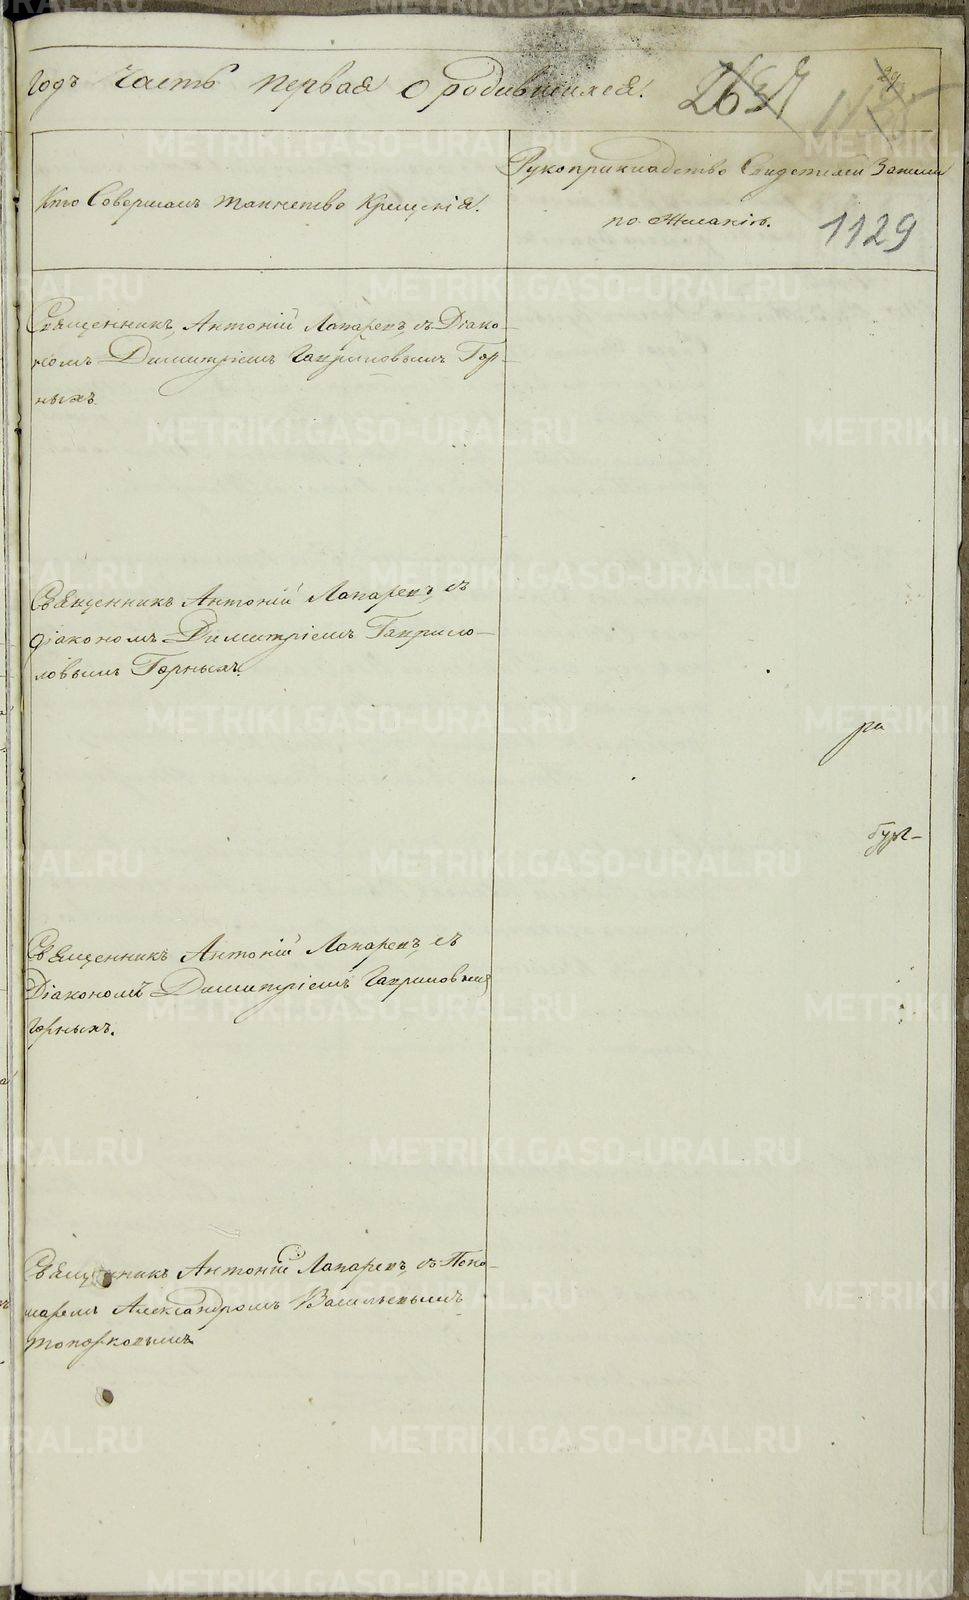 годъ Часть первая о родившихся.
1129
Кто Совершалъ таинство Крещенія.
Рукоприкладство Свидетелей Записи
по Желанію.
Священникъ Антоній Лапаревъ, съ Діако-
номъ Димитріемъ Гавриловымъ Гор-
ныхъ
Священникъ Антоній Лапаревъ, съ
діакономъ Димитріемъ Гаврило-
ловымъ Горныхъ.
ра
Священникъ Антоній Лапаревъ, съ
Діакономъ Димитріемъ Гавриловымъ
Горныхъ.
Священникъ Антоній Лапаревъ, съ Поно-
маремъ Александромъ Васильевымъ
Топорковымъ
METRIKI.GASO-URAL.RU